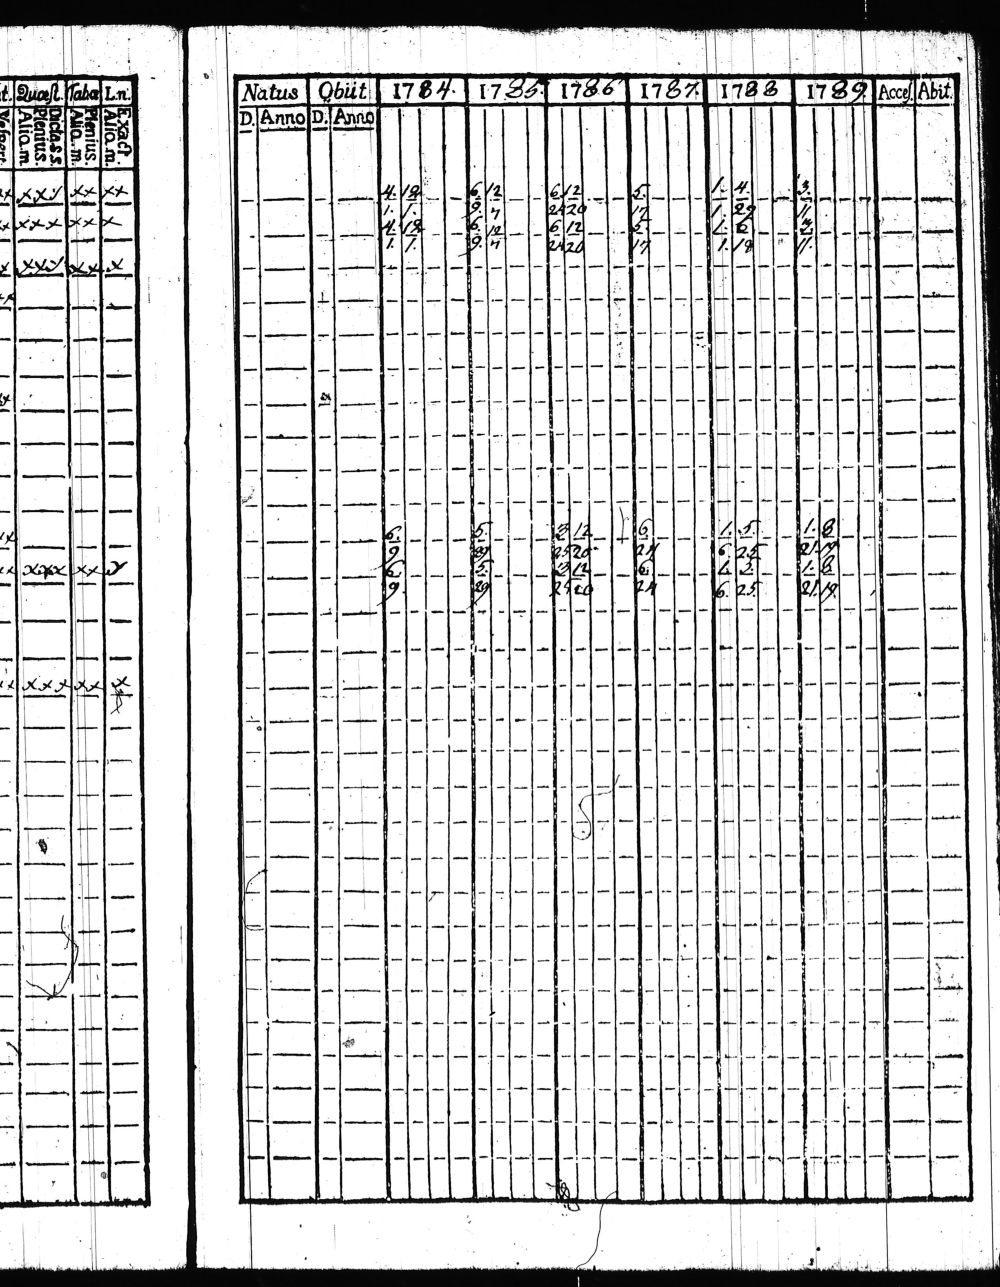 Quæst. Tabæ L.n.
Vespert. Alio.m. Plenius. Dicta s.s. Alio.m. Plenius. Alio.m. Exact.
x x x x x x x
x x x x x x
x x x x x x
x x x x x x
x x x x x x
Natus Obiit 1784. 1785. 1786 1787. 1788 1789. Acces. Abit.
D. Anno D. Anno
4. 12 6 12 6 12 5. 1. 4. 3.
1. 1. 9. 7 24 20 17 1. 29 11
4. 12 6. 12 6 12 5. 1. 6 3.
1. 1. 9. 7 24 20 17 1. 18 11.
6. 5. 3 12 6. 1. 5. 1. 8
9 29 25 20 24 6. 25 21. 19
6. 5. 3 12 6. 1. 5. 1. 8
9. 29 25 20 24 6. 25 21. 19